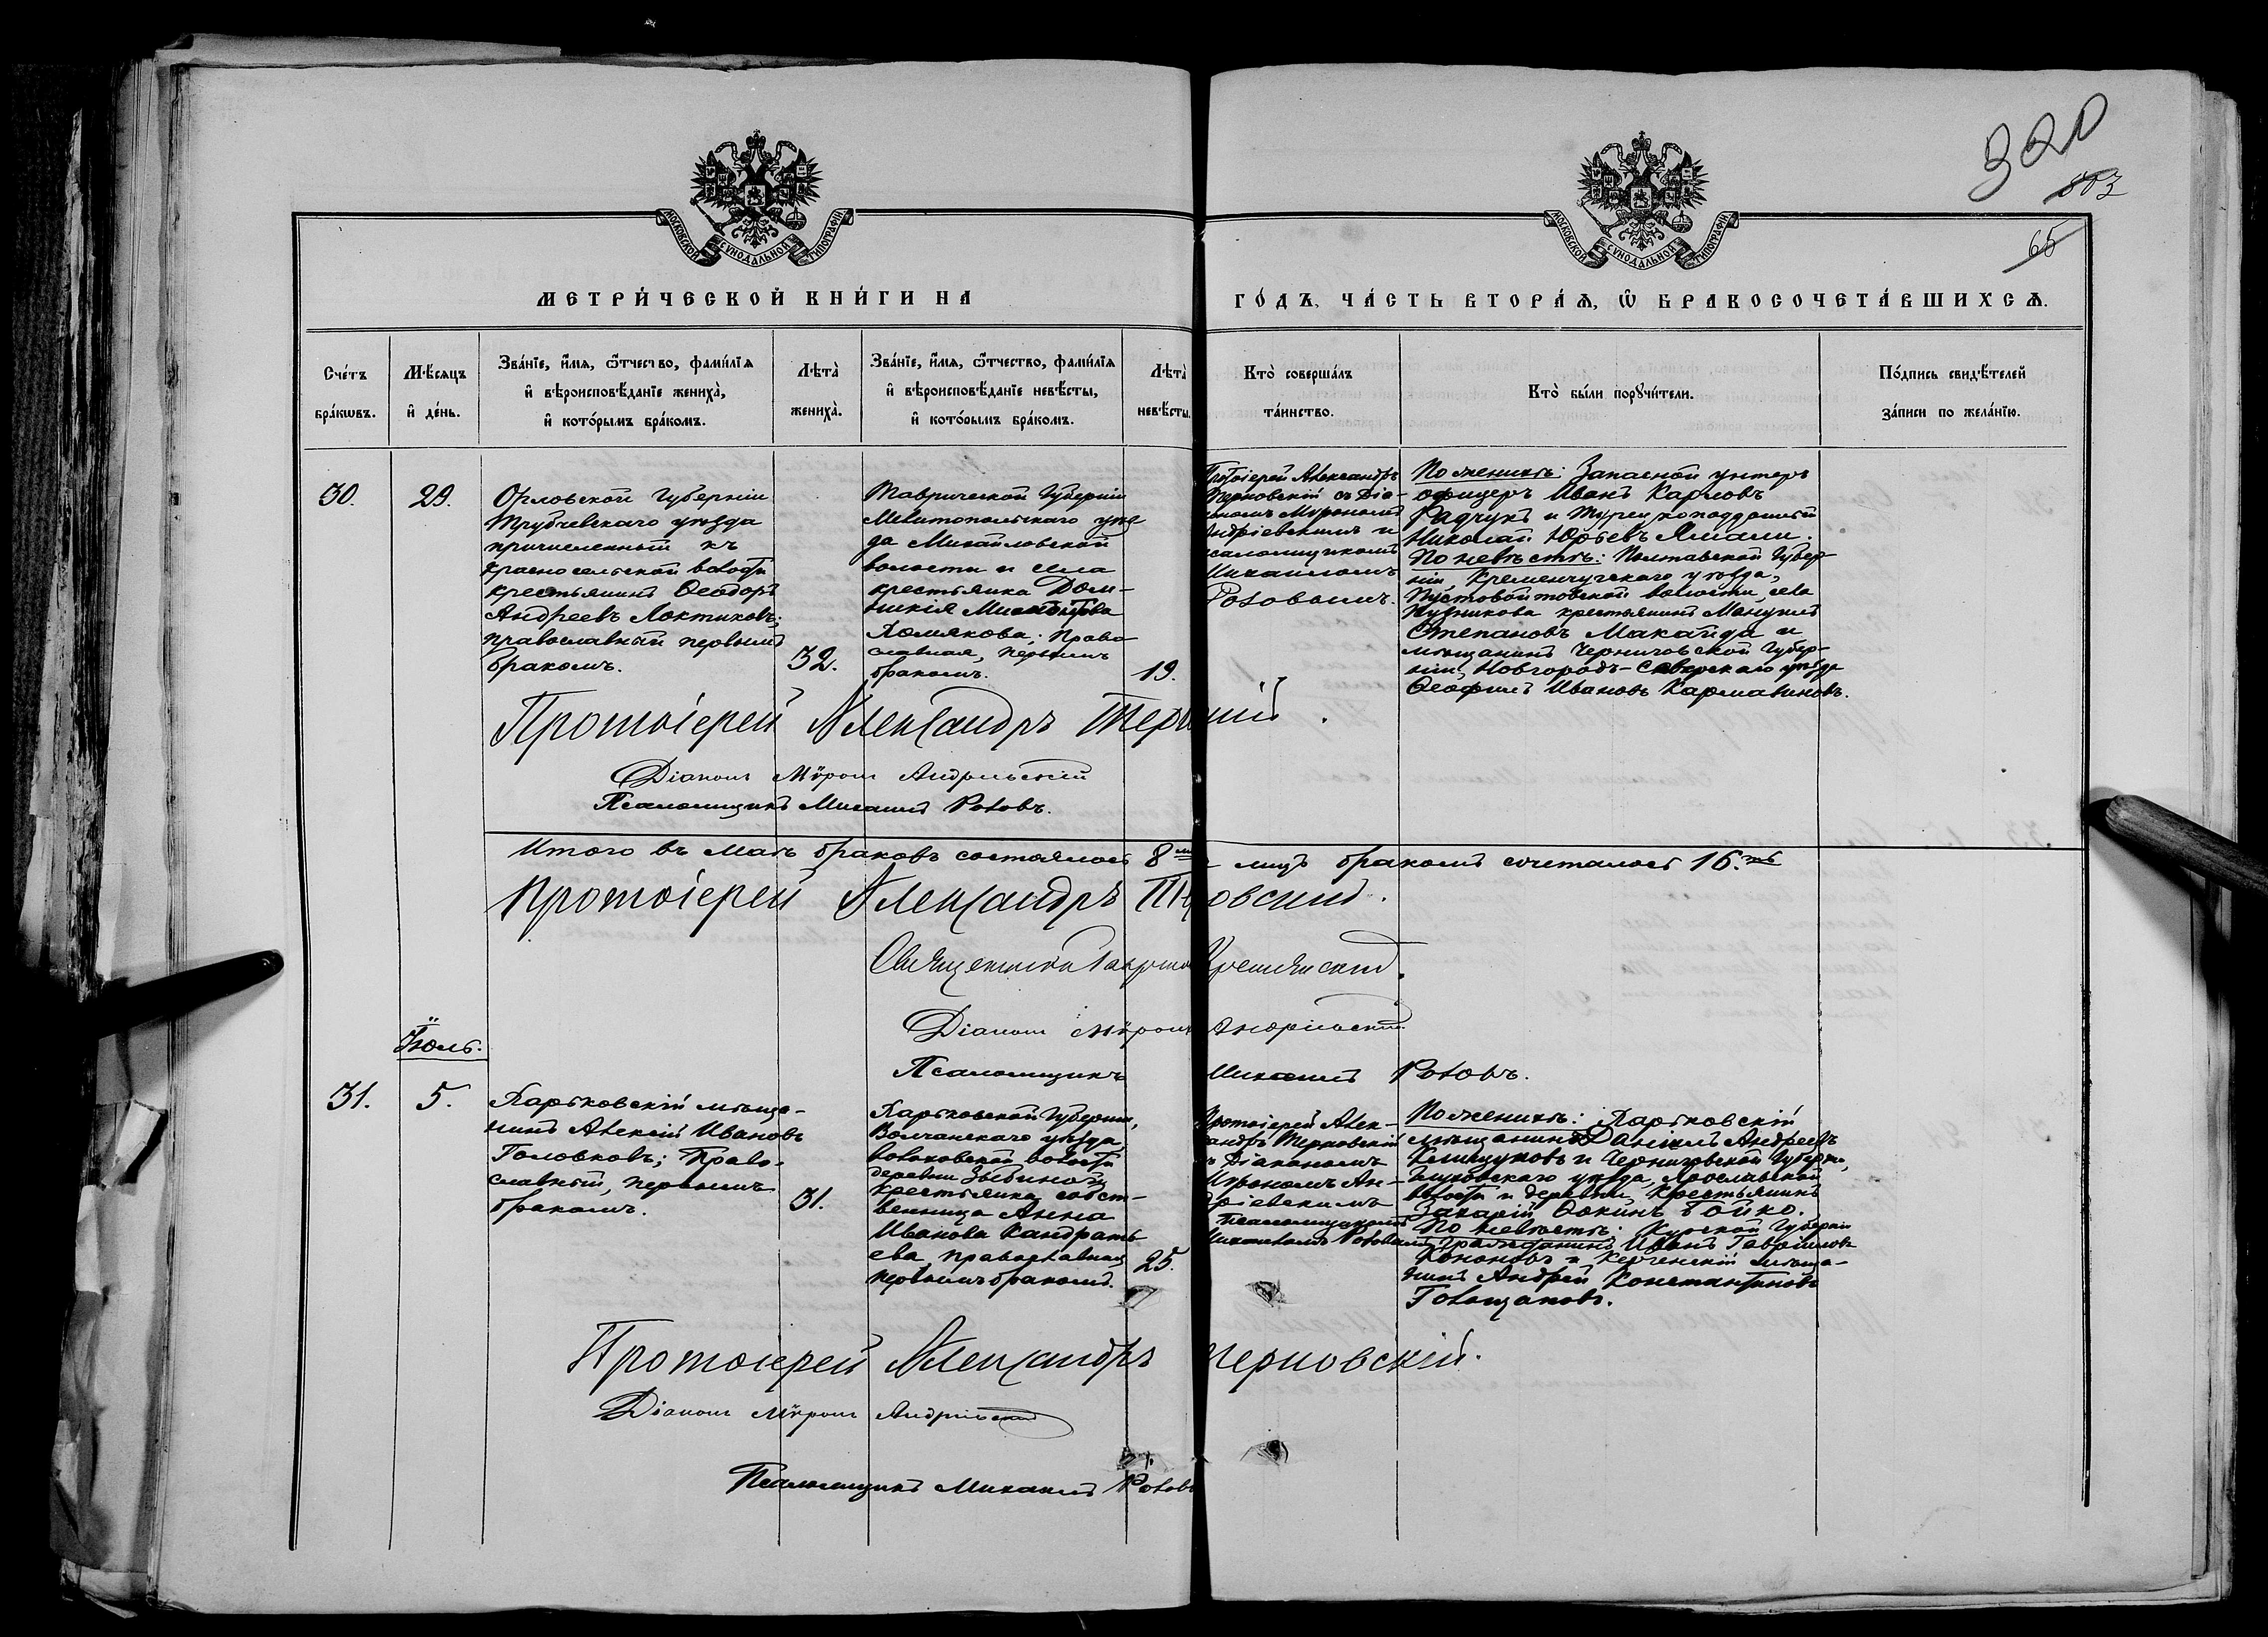 320
803
65
МОСКОВСКОЙ СУНОДАЛЬНОЙ ТИПОГРАФІИ
МОСКОВСКОЙ СУНОДАЛЬНОЙ ТИПОГРАФІИ
МЕТРИ́ЧЕСКОЙ КНИ́ГИ НА
ГО́ДЪ, ЧА́СТЬ ВТОРА́Ѧ, Ѽ БРАКОСОЧЕТА́ВШИХСѦ.
Сче́тъ
бра́кѡвъ.
Мѣ́сяцъ
и҆ де́нь.
Зва́нїе, и҆́мя, ѻ҆́тчество, фами́лїя
и҆ вѣроисповѣ́данїе жениха̀,
и҆ кото́рымъ бра́комъ.
Лѣта̀
жениха̀.
Зва́нїе, и҆́мя, ѻ҆́тчество, фами́лїя
и҆ вѣроисповѣ́данїе невѣ́сты,
и҆ кото́рымъ бра́комъ.
Лѣта̀
невѣ́сты.
Кто̀ соверша́лъ
та́инство.
Кто̀ бы́ли порꙋчи́тели.
По́дпись свидѣ́телей
за́писи по жела́нїю.
30.
29.
Орловской Губерніи
Трубчевскаго уѣзда
причисленный къ
Красносельской волости
крестьянинъ Ѳеодоръ
Андреевъ Локтиковъ;
православный первымъ
бракомъ.
32.
Таврической Губерніи
Мелитопольскаго уѣз
да Михайловской
волости и села
крестьянка Дом-
никія
Хомякова; Право
славная, первымъ
бракомъ.
19.
Протоіерей Александръ
Терновскій съ Діа-
кономъ Мѵрономъ
Андріевскимъ и
псаломщикомъ
Михаиломъ
Ротовымъ.
По женихѣ: Запасной унтеръ
офицеръ Иванъ Карповъ
Радчукъ и Турецкоподданный
Николай Юрьевъ
По невѣстѣ: Полтавской Губер-
ніи, Кременчугскаго уѣзда,
волости, села
крестьянинъ
Степановъ Макайда и
мѣщанинъ Черниговской Губер-
ніи, Новгородъ-Сѣверскаго уѣзда
Ѳеофилъ Ивановъ
Протоіерей Александръ Терновскій.
Діаконъ Мѵронъ Андріевскій
Псаломщикъ Михаилъ Ротовъ.
Итого въ маѣ браковъ состоялось 8 лицъ бракомъ сочеталось 16.
Протоіерей Александръ Терновскій.
Священникъ
Діаконъ Мѵронъ Андріевскій
Псаломщикъ Михаилъ Ротовъ.
Іюль.
31.
5.
Харьковскій мѣща-
нинъ Алексій Ивановъ
Головковъ; Право-
славный, первымъ
бракомъ.
31.
Харьковской Губерніи,
Волчанскаго уѣзда,
волости
деревни
крестьянка собст-
венница Анна
Иванова Кандрать
ева, православная
первымъ бракомъ.
25.
Протоіерей Алек-
сандръ Терновскій
съ Діакономъ
Мѵрономъ Ан-
дріевскимъ
псаломщикомъ
Михаиломъ Ротовымъ
По женихѣ: Харьковскій
мѣщанинъ Даніилъ Андреевъ
и Черниговской Губерніи,
уѣзда, Ярославской
волости и деревни, крестьянинъ
Захарій Бойко.
По невѣстѣ: Курской Губерніи
гражданинъ Иванъ Гавріиловъ
Кононовъ и Керченскій мѣща-
нинъ Андрей Константиновъ
Протоіерей Александръ Терновскій.
Діаконъ Мѵронъ Андріевскій
Псаломщикъ Михаилъ Ротовъ